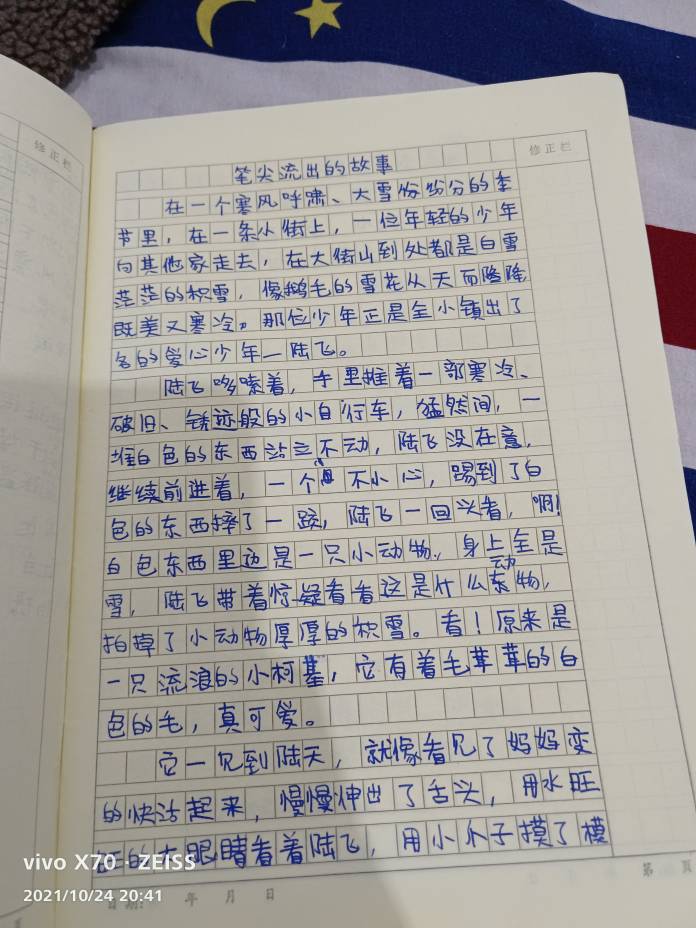 修正栏
修正栏
笔尖流出的故事
在一个寒风呼啸、大雪纷纷分的季
节里，在一条小街上，一位年轻的少年
向其他家走去，在大街山到处都是白雪
茫茫的积雪，像鹅毛的雪花从天而隆降
既美又寒冷。那位少年正是全小镇出了
名的爱心少年—陆飞。
陆飞哆嗦着，手里推着一部寒冷、
破旧、锈迹般的小自行车，猛然间，一
堆白色的东西站立不动，陆飞没在意，
继续前进着，一个不小心，踢到了白
色的东西摔了一跤，陆飞一回头看，啊！
白色东西里边是一只小动物，身上全是
雪，陆飞带着惊疑看看这是什么动物，
拍掉了小动物厚厚的积雪。看！原来是
一只流浪的小柯基，它有着毛茸茸的白
色的毛，真可爱。
它一见到陆天，就像看见了妈妈变
的快活起来，慢慢伸出了舌头，用水旺
旺的大眼睛看着陆飞，用小爪子摸了模
vivo X70 · ZEISS
2021/10/24 20:41
日期： 年 月 日
第 页
页